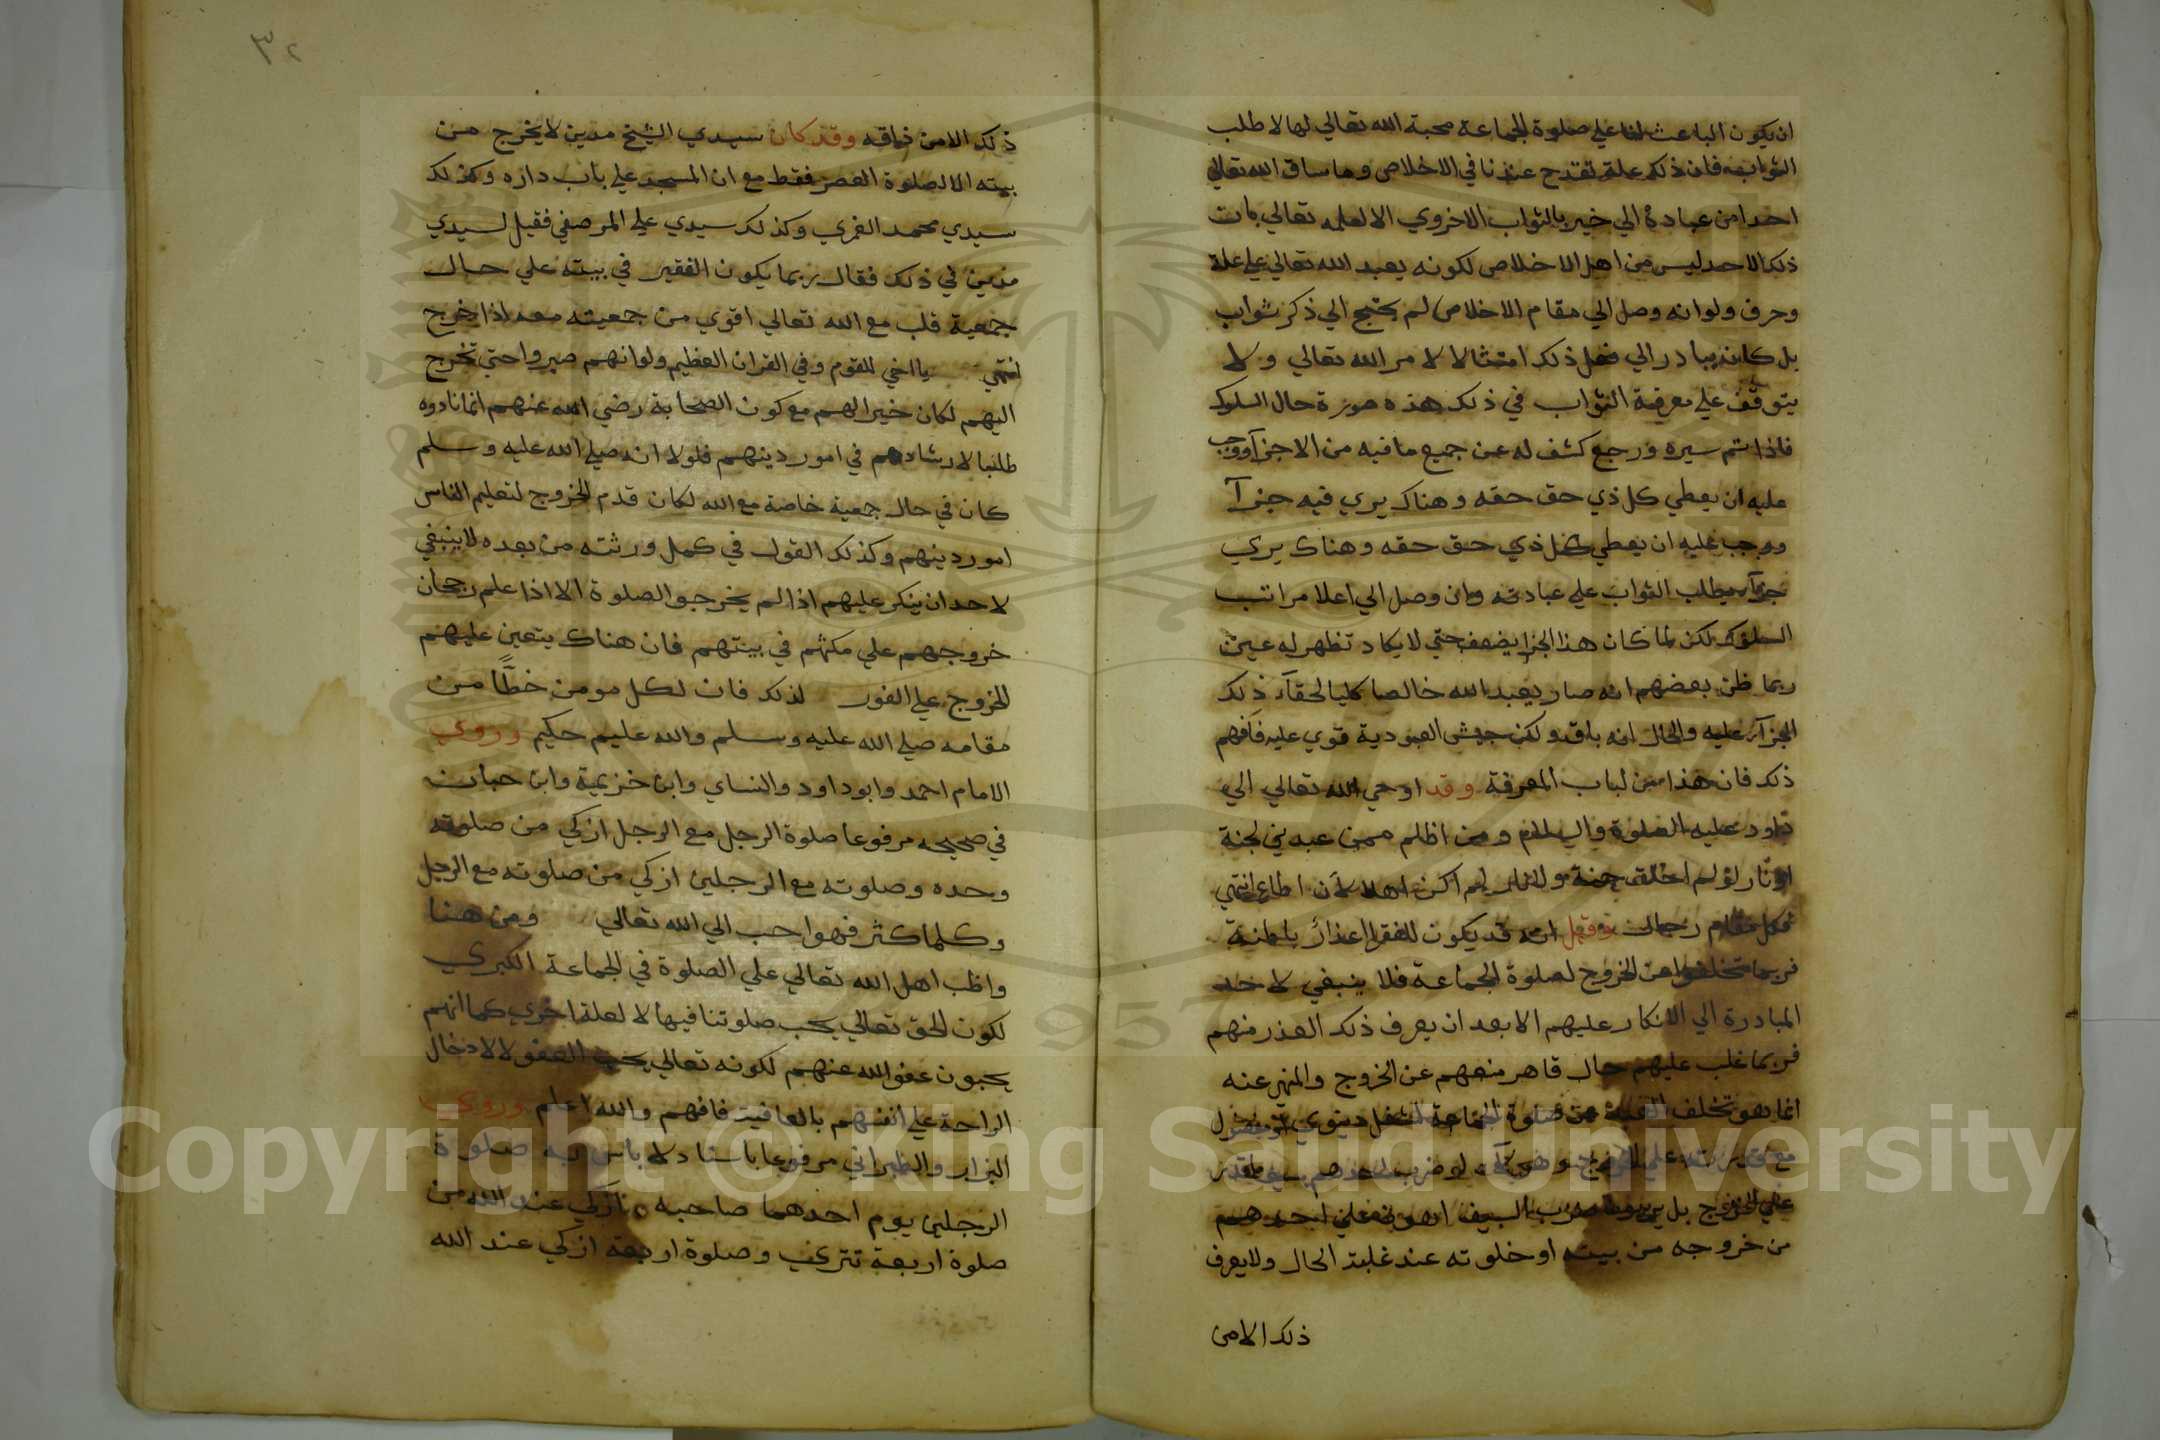 ان يكون الباعث لنا علي صلوة الجماعة محبة الله تعالي لها لا طلب
الثواب فان ذلك علة تقدح عندنا في الاخلاص وما ساق الله تعالي
احدا من عباده الي خير بالثواب الاخروي الا لعلمه تعالي بان
ذلك الاحد ليس من اهل الاخلاص لكونه يعبد الله تعالي علي علة
وحرف ولو انه وصل الي مقام الاخلاص لم يحتج الي ذكر ثواب
بل كان يبادر الي فعل ذلك امتثالا لامر الله تعالي ولا
يتوقف علي معرفة الثواب في ذلك هذه صورة حال السلوك
فاذا تم سيره ورجع كشف له عن جميع ما فيه من الاجزآ ووجب
عليه ان يعطي كل ذي حق حقه وهناك يري فيه جزآ
ووجب عليه ان يعطي كل ذي حق حقه وهناك يري
جزآ يطلب الثواب علي عبادته وان وصل الي اعلا مراتب
السلوك لكن لما كان هذا الجزا يضعف حتي لا يكاد تظهر له عين
ربما ظن بعضهم انه صار يعبد الله خالصا كليا لخفآء ذلك
الجزآء عليه والحال انه باق ولكن جيش العبودية قوي عليه فافهم
ذلك فان هذا من لباب المعرفة وقد اوحي الله تعالي الي
داود عليه الصلوة والسلام ومن اظلم ممن عبدني لجنة
او نار لو لم اخلق جنة ولا نار لم اكن اهلا لأن اطاع انتهي
فلكل مقام رجال انه قد يكون للفقرا اعذار باطنة
فربما تخلفوا عن الخروج لصلوة الجماعة فلا ينبغي لاحد
المبادرة الي الانكار عليهم الا بعد ان يعرف ذلك العذر منهم
فربما غلب عليهم حال قاهر منعهم عن الخروج والمنهي عنه
انما هو تخلف العبد عن صلوة الجماعة لشغل دنيوي
علي لو ضرب احدهم ما قدر
علي الخروج بل يري ضرب السيف اهون علي احدهم
من خروجه من بيته او خلوته عند غلبة الحال ولا يعرف
ذلك الا من
٣٢
ذلك الا من ذاقه وقد كان سيدي الشيخ مدين لا يخرج من
بيته الا لصلوة العصر فقط مع ان المسجد علي باب داره وكذلك
سيدي محمد الغمري وكذلك سيدي علي المرصفي فقيل لسيدي
مدين في ذلك فقال ربما يكون الفقير في بيته علي حال
جمعية قلب مع الله تعالي اقوي من جمعيته معه اذا خرج
انتهي يا اخي للقوم وفي القران العظيم ولو انهم صبروا حتي تخرج
اليهم لكان خيرا لهم مع كون الصحابة رضي الله عنهم انما نادوه
طلبا لارشادهم في امور دينهم فلولا انه صلي الله عليه وسلم
كان في حال جمعية خاصة مع الله لكان قدم الخروج لتعليم الناس
امور دينهم وكذلك القول في كمل ورثته من بعده لا ينبغي
لاحد ان ينكر عليهم اذا لم يخرجوا الصلوة الا اذا علم رجحان
خروجهم علي مكثهم في بيتهم فان هناك يتعين عليهم
الخروج علي الفور لذلك فان لكل مومن خطًّا من
مقامه صلي الله عليه وسلم والله عليم حكيم وروي
الامام احمد وابو داود والنساي وابن خزيمة وابن حبان
في صحيحه مرفوعا صلوة الرجل مع الرجل ازكي من صلوته
وحده وصلوته مع الرجلين ازكي من صلوته مع الرجل
وكلما كثر فهو احب الي الله تعالي ومن هنا
واظب اهل الله تعالي علي الصلوة في الجماعة الكبري
لكون الحق تعالي يحب صلوتنا فيها لا لعلة اخري كما انهم
يحبون عفو الله عنهم لكونه تعالي يحب العفو لا لادخال
الراحة علي انفسهم بالعافية فافهم والله اعلم وروي
البزار والطبراني مرفوعا باسناد لا باس به صلوة
الرجلين يوم احدهما صاحبه ازكي عند الله من
صلوة اربعة تتري وصلوة اربعة ازكي عند الله
Copyright © King Saud University
1957